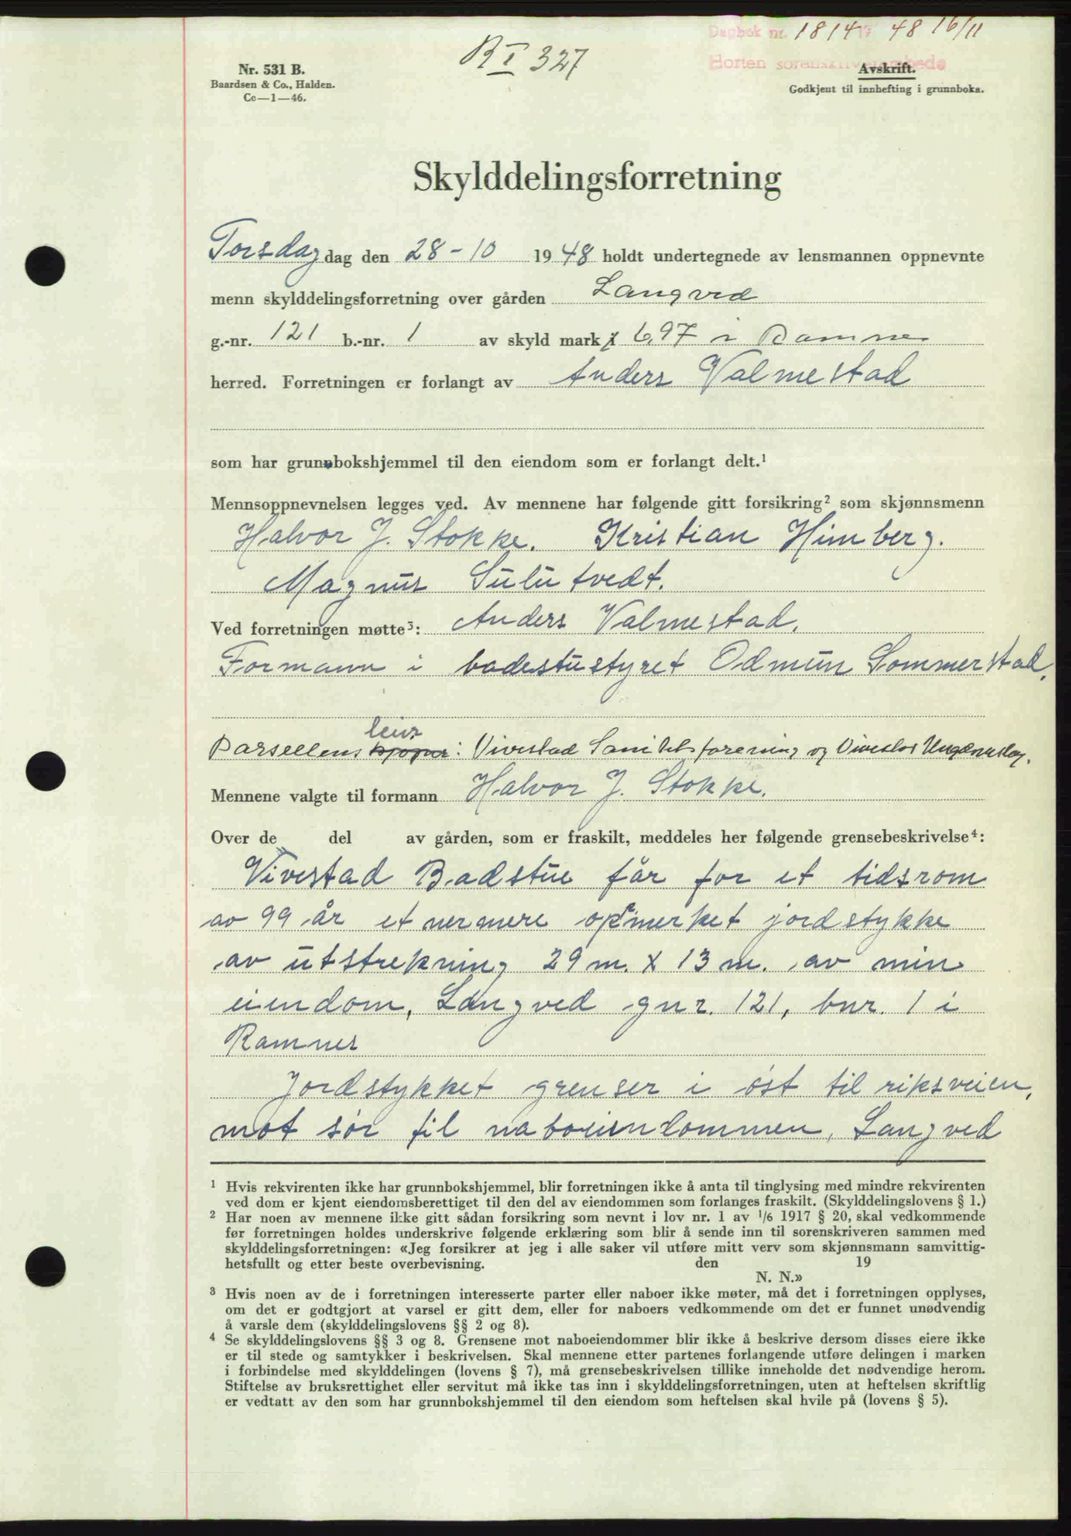 Dagbok nr. 1814 1948 16/11
Horten sorenskriverembede
B I 327
Nr. 531 B.
Baardsen & Co., Halden.
Cc—1—46.
Avskrift.
Godkjent til innhefting i grunnboka.
Skylddelingsforretning
Torsdag dag den 28-10 1948 holdt undertegnede av lensmannen oppnevnte
menn skylddelingsforretning over gården Langved
g.-nr. 121 b.-nr. 1 av skyld mark 6,97 i Ramnes
herred. Forretningen er forlangt av Anders Valmestad
som har grunnbokshjemmel til den eiendom som er forlangt delt.¹
Mennsoppnevnelsen legges ved. Av mennene har følgende gitt forsikring² som skjønnsmenn
Halvor J. Stokke. Kristian Himberg.
Magnus Sulutvedt.
Ved forretningen møtte³: Anders Valmestad.
Formann i badestustyret Odmun Sommerstad.
leier
Parsellens kjøper: Vivestad Sanitetsforening og Vivestad Ungdomslag.
Mennene valgte til formann Halvor J. Stokke.
Over de del av gården, som er fraskilt, meddeles her følgende grensebeskrivelse⁴:
Vivestad Badstue får for et tidsrom
av 99 år et nermere opmerket jordstykke
av utstrekning 29 m. x 13 m. av min
eiendom, Langved gnr. 121, bnr. 1 i
Ramnes
Jordstykket grenser i øst til riksveien,
mot sør til naboeiendommen, Langved
¹ Hvis rekvirenten ikke har grunnbokshjemmel, blir forretningen ikke å anta til tinglysing med mindre rekvirenten
ved dom er kjent eiendomsberettiget til den del av eiendommen som forlanges fraskilt. (Skylddelingslovens § 1.)
² Har noen av mennene ikke gitt sådan forsikring som nevnt i lov nr. 1 av 1/6 1917 § 20, skal vedkommende
før forretningen holdes underskrive følgende erklæring som blir å sende inn til sorenskriveren sammen med
skylddelingsforretningen: «Jeg forsikrer at jeg i alle saker vil utføre mitt verv som skjønnsmann samvittig-
hetsfullt og etter beste overbevisning. den 19
N. N.»
³ Hvis noen av de i forretningen interesserte parter eller naboer ikke møter, må det i forretningen opplyses,
om det er godtgjort at varsel er gitt dem, eller for naboers vedkommende om det er funnet unødvendig
å varsle dem (skylddelingslovens §§ 2 og 8).
⁴ Se skylddelingslovens §§ 3 og 8. Grensene mot naboeiendommer blir ikke å beskrive dersom disses eiere ikke
er til stede og samtykker i beskrivelsen. Skal mennene etter partenes forlangende utføre delingen i marken
i forbindelse med skylddelingen (lovens § 7), må grensebeskrivelsen tillike inneholde det nødvendige herom.
Stiftelse av bruksrettighet eller servitut må ikke tas inn i skylddelingsforretningen, uten at heftelsen skriftlig
er vedtatt av den som har grunnbokshjemmel til den eiendom som heftelsen skal hvile på (lovens § 5).